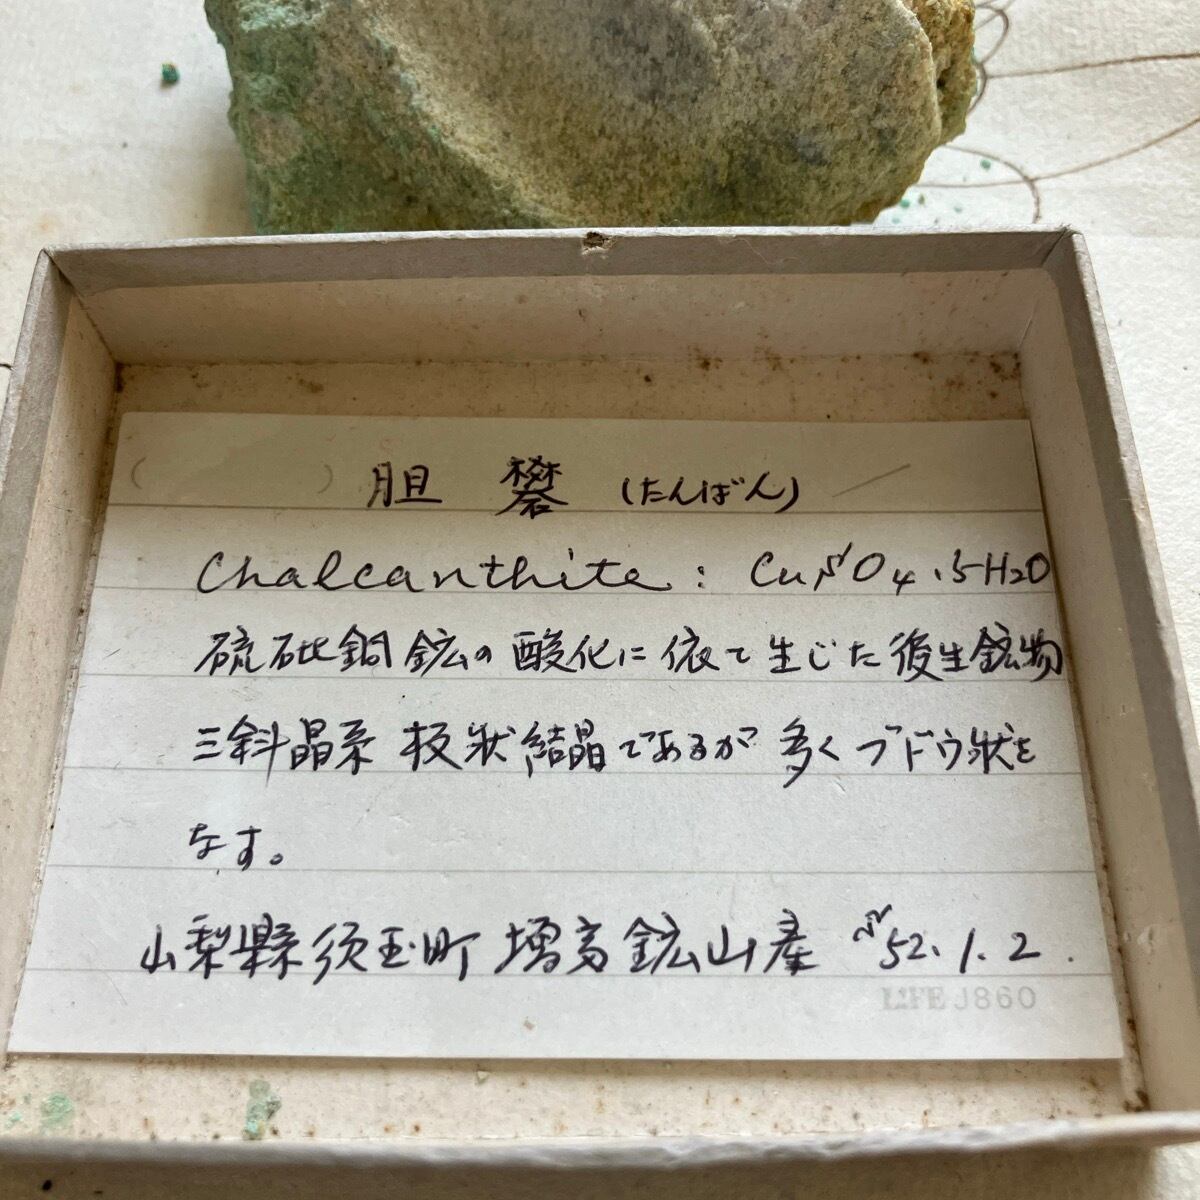 ( ) 胆 礬 (たんばん)
Chalcanthite : CuSO4.5H2O
硫砒銅鉱の酸化に依て生じた後生鉱物
三斜晶系 板状結晶であるが 多くブドウ状を
なす。
山梨縣須玉町 増富鉱山産 S52.1.2.
LIFE J860